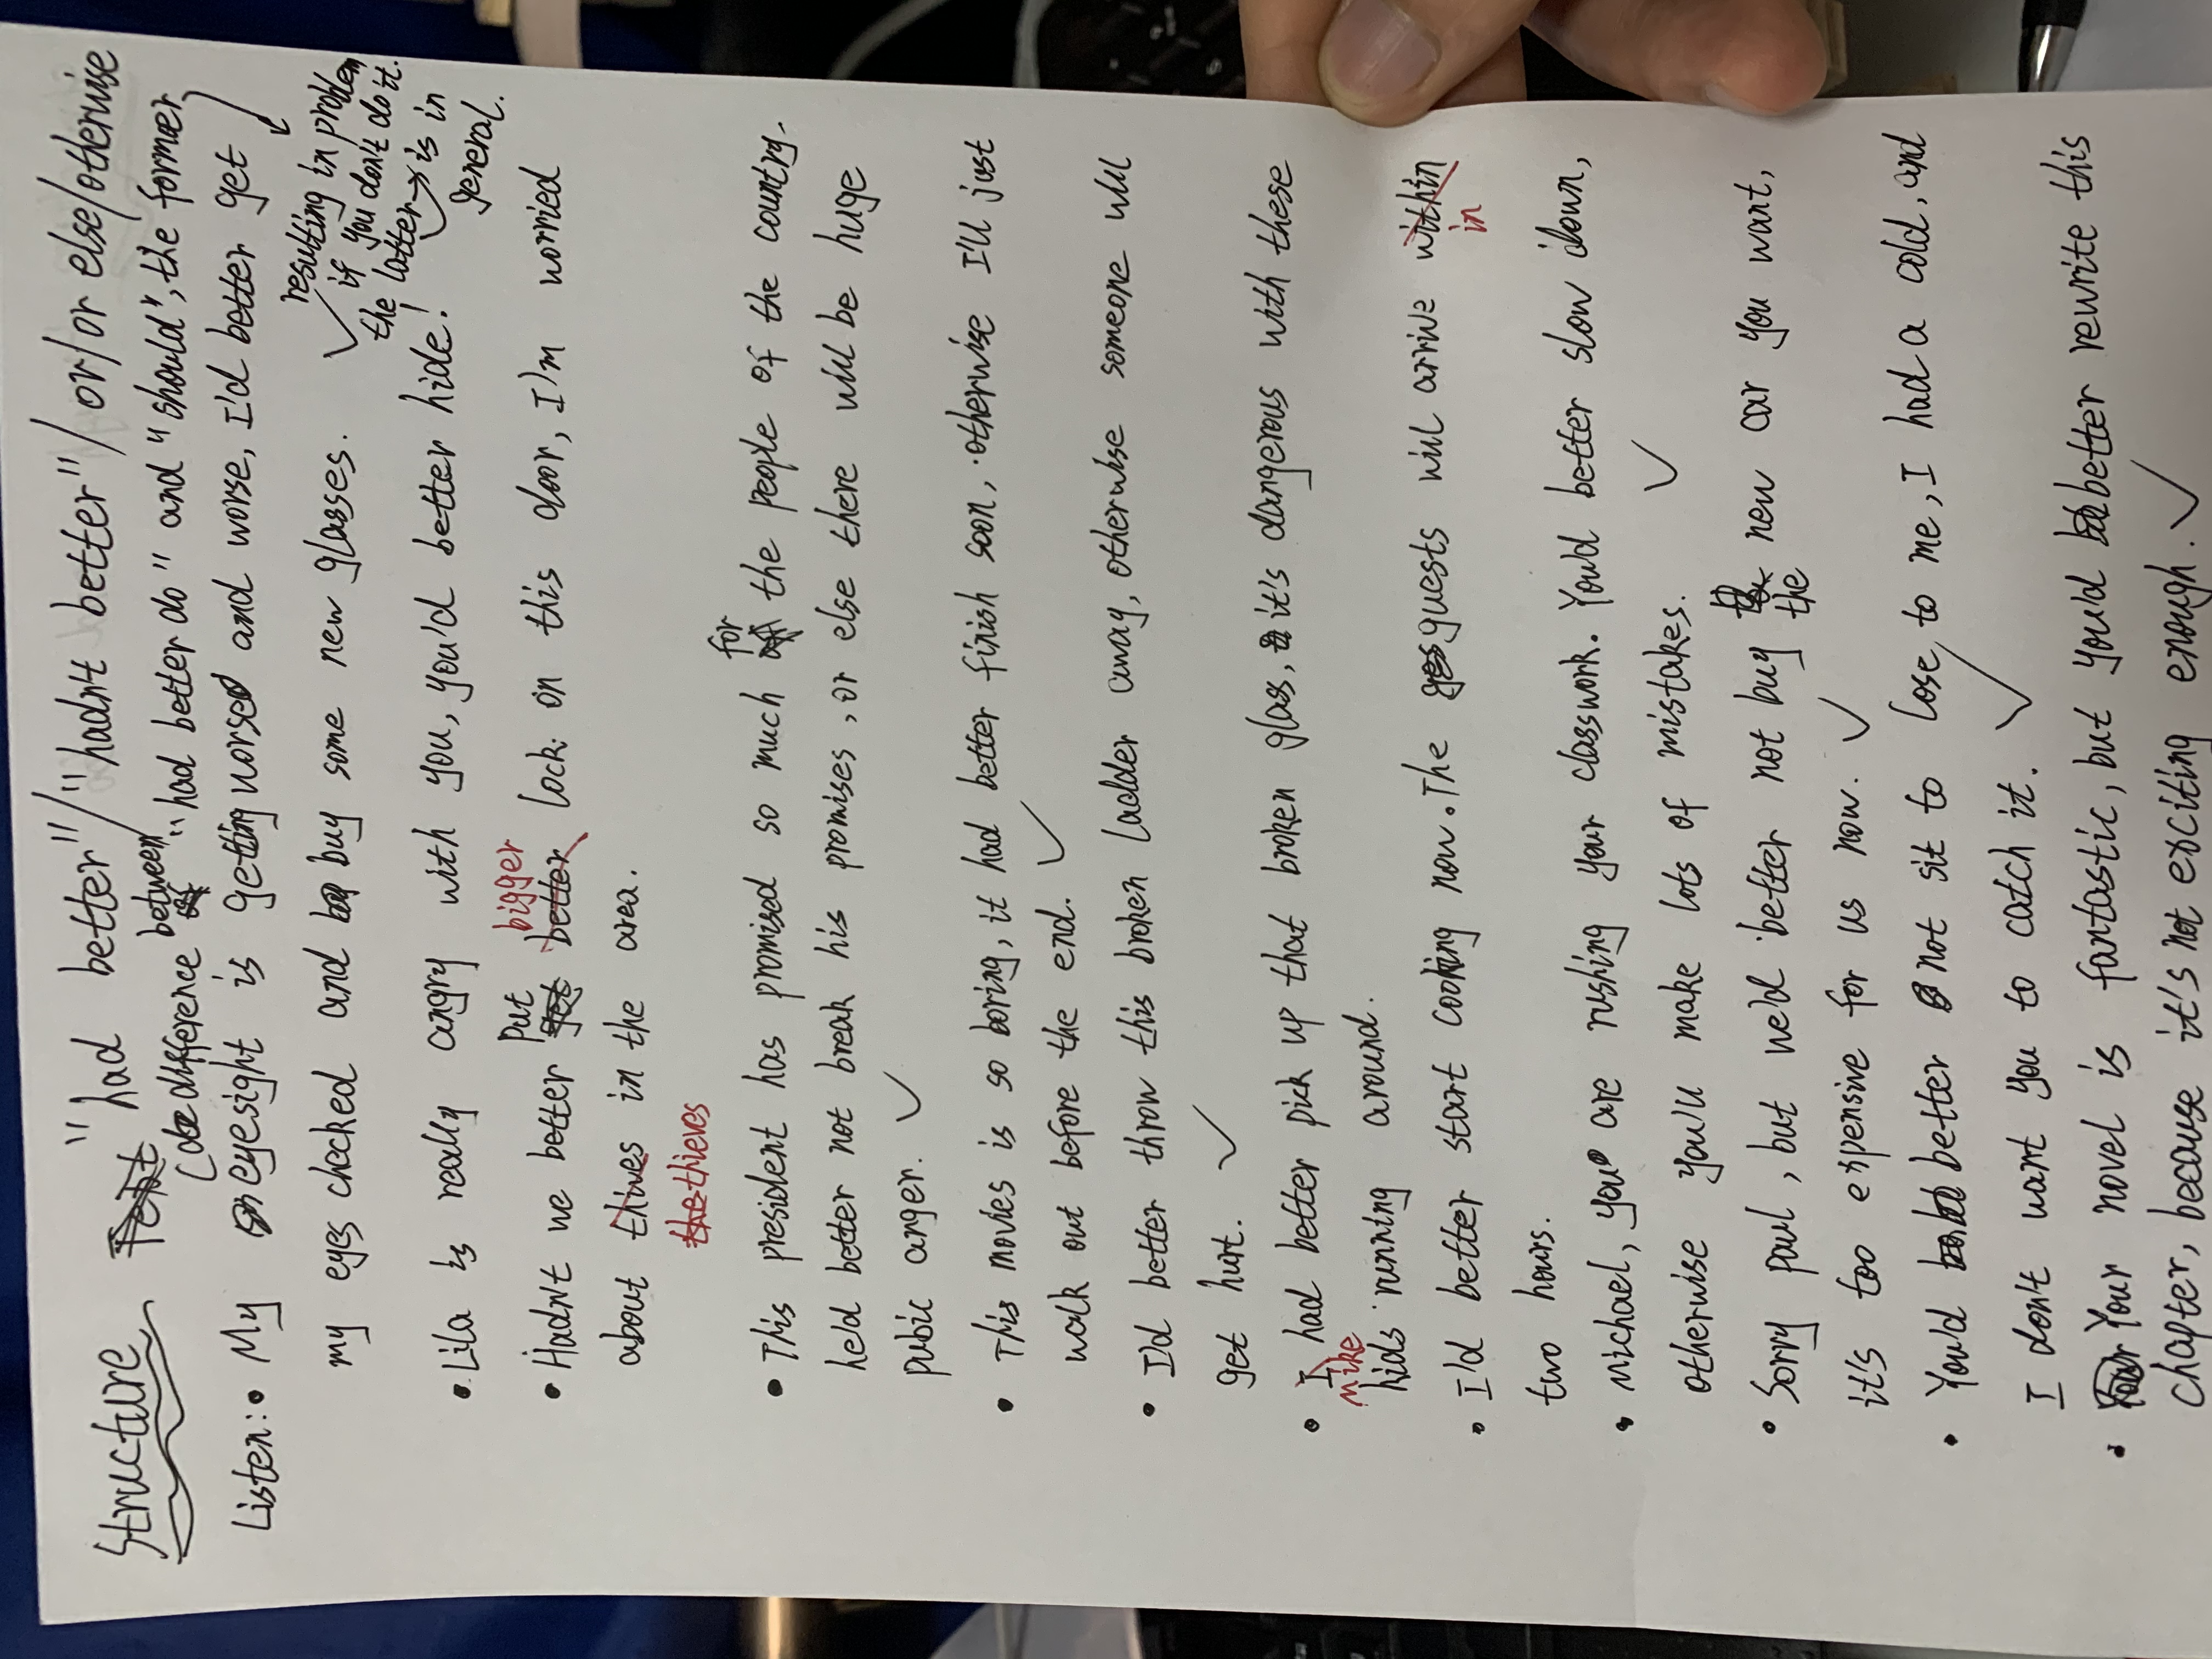 Structure "had better"/"hadn't better"/or/or else/otherwise
(difference between "had better do" and "should", the former
resulting in problem
if you don't do it.
the latter → is in
general.
Listen: • My eyesight is getting worse and worse, I'd better get
my eyes checked and buy some new glasses.
• Lila is really angry with you, you'd better hide!
put bigger
• Hadn't we better get better lock on this door, I'm worried
about thives in the area.
the thieves
for
• This president has promised so much the people of the country.
he'd better not break his promises, or else there will be huge
pubic anger.
• This movies is so boring, it had better finish soon, otherwise I'll just
walk out before the end.
• I'd better throw this broken ladder away, otherwise someone will
get hurt.
• I had better pick up that broken glass, it's dangerous with these
mike
kids running around.
• I'd better start cooking now. The guests will arrive within
in
two hours.
• Michael, you are rushing your classwork. You'd better slow down,
otherwise you'll make lots of mistakes.
• Sorry paul, but we'd better not buy new car you want,
the
it's too expensive for us now.
• You'd better not sit to lose to me, I had a cold, and
I don't want you to catch it.
• Your novel is fantastic, but you'd better rewrite this
chapter, because it's not exciting enough.